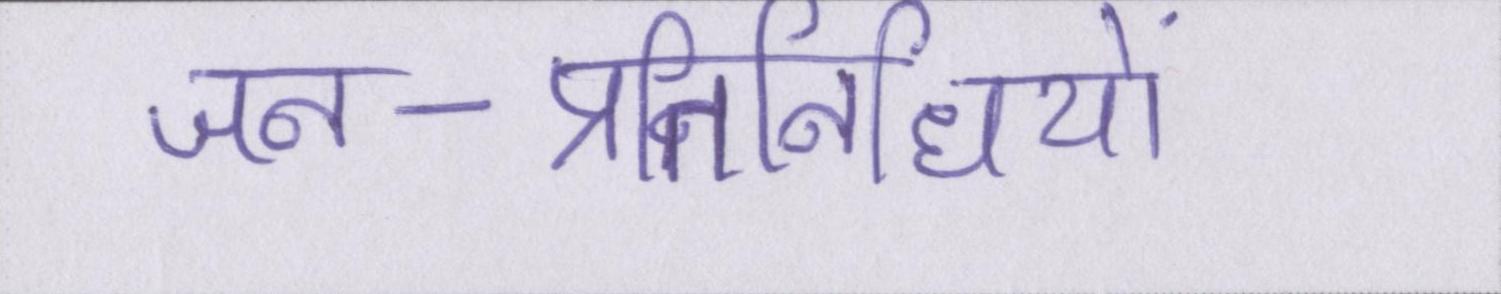 जन-प्रतिनिधियों